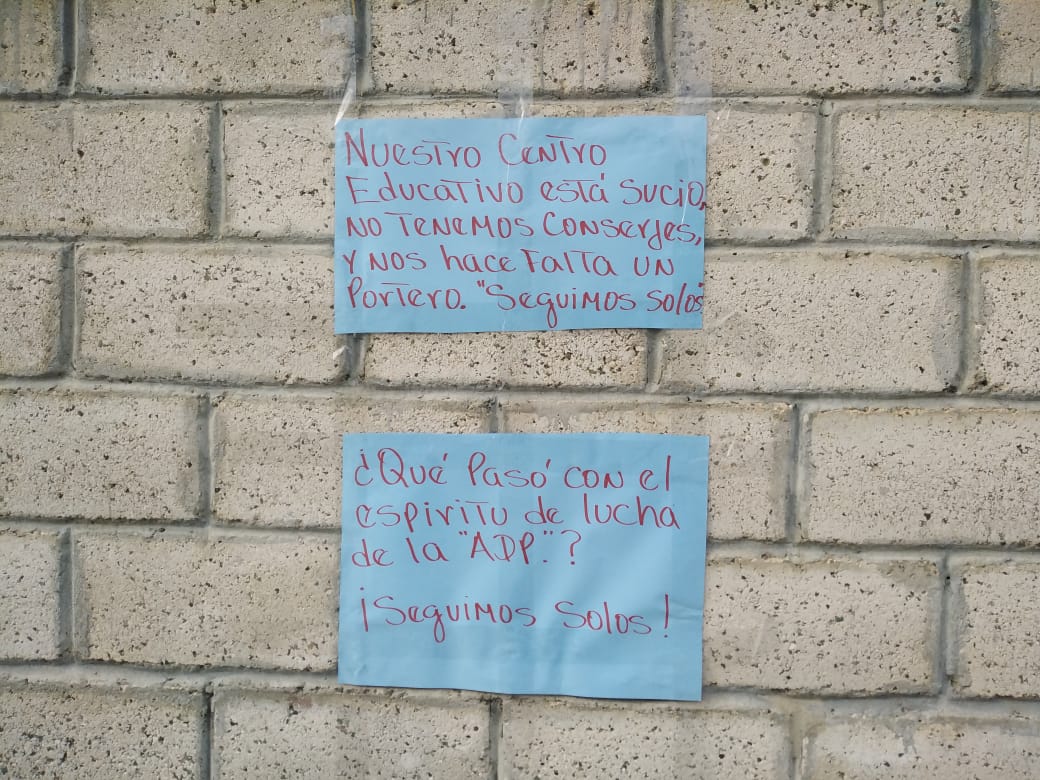 Nuestro Centro
Educativo está sucio,
no tenemos conserjes,
y nos hace falta un
Portero. "Seguimos solos"
¿Qué Pasó con el
espiritu de lucha
de la "ADP."?
¡Seguimos Solos!